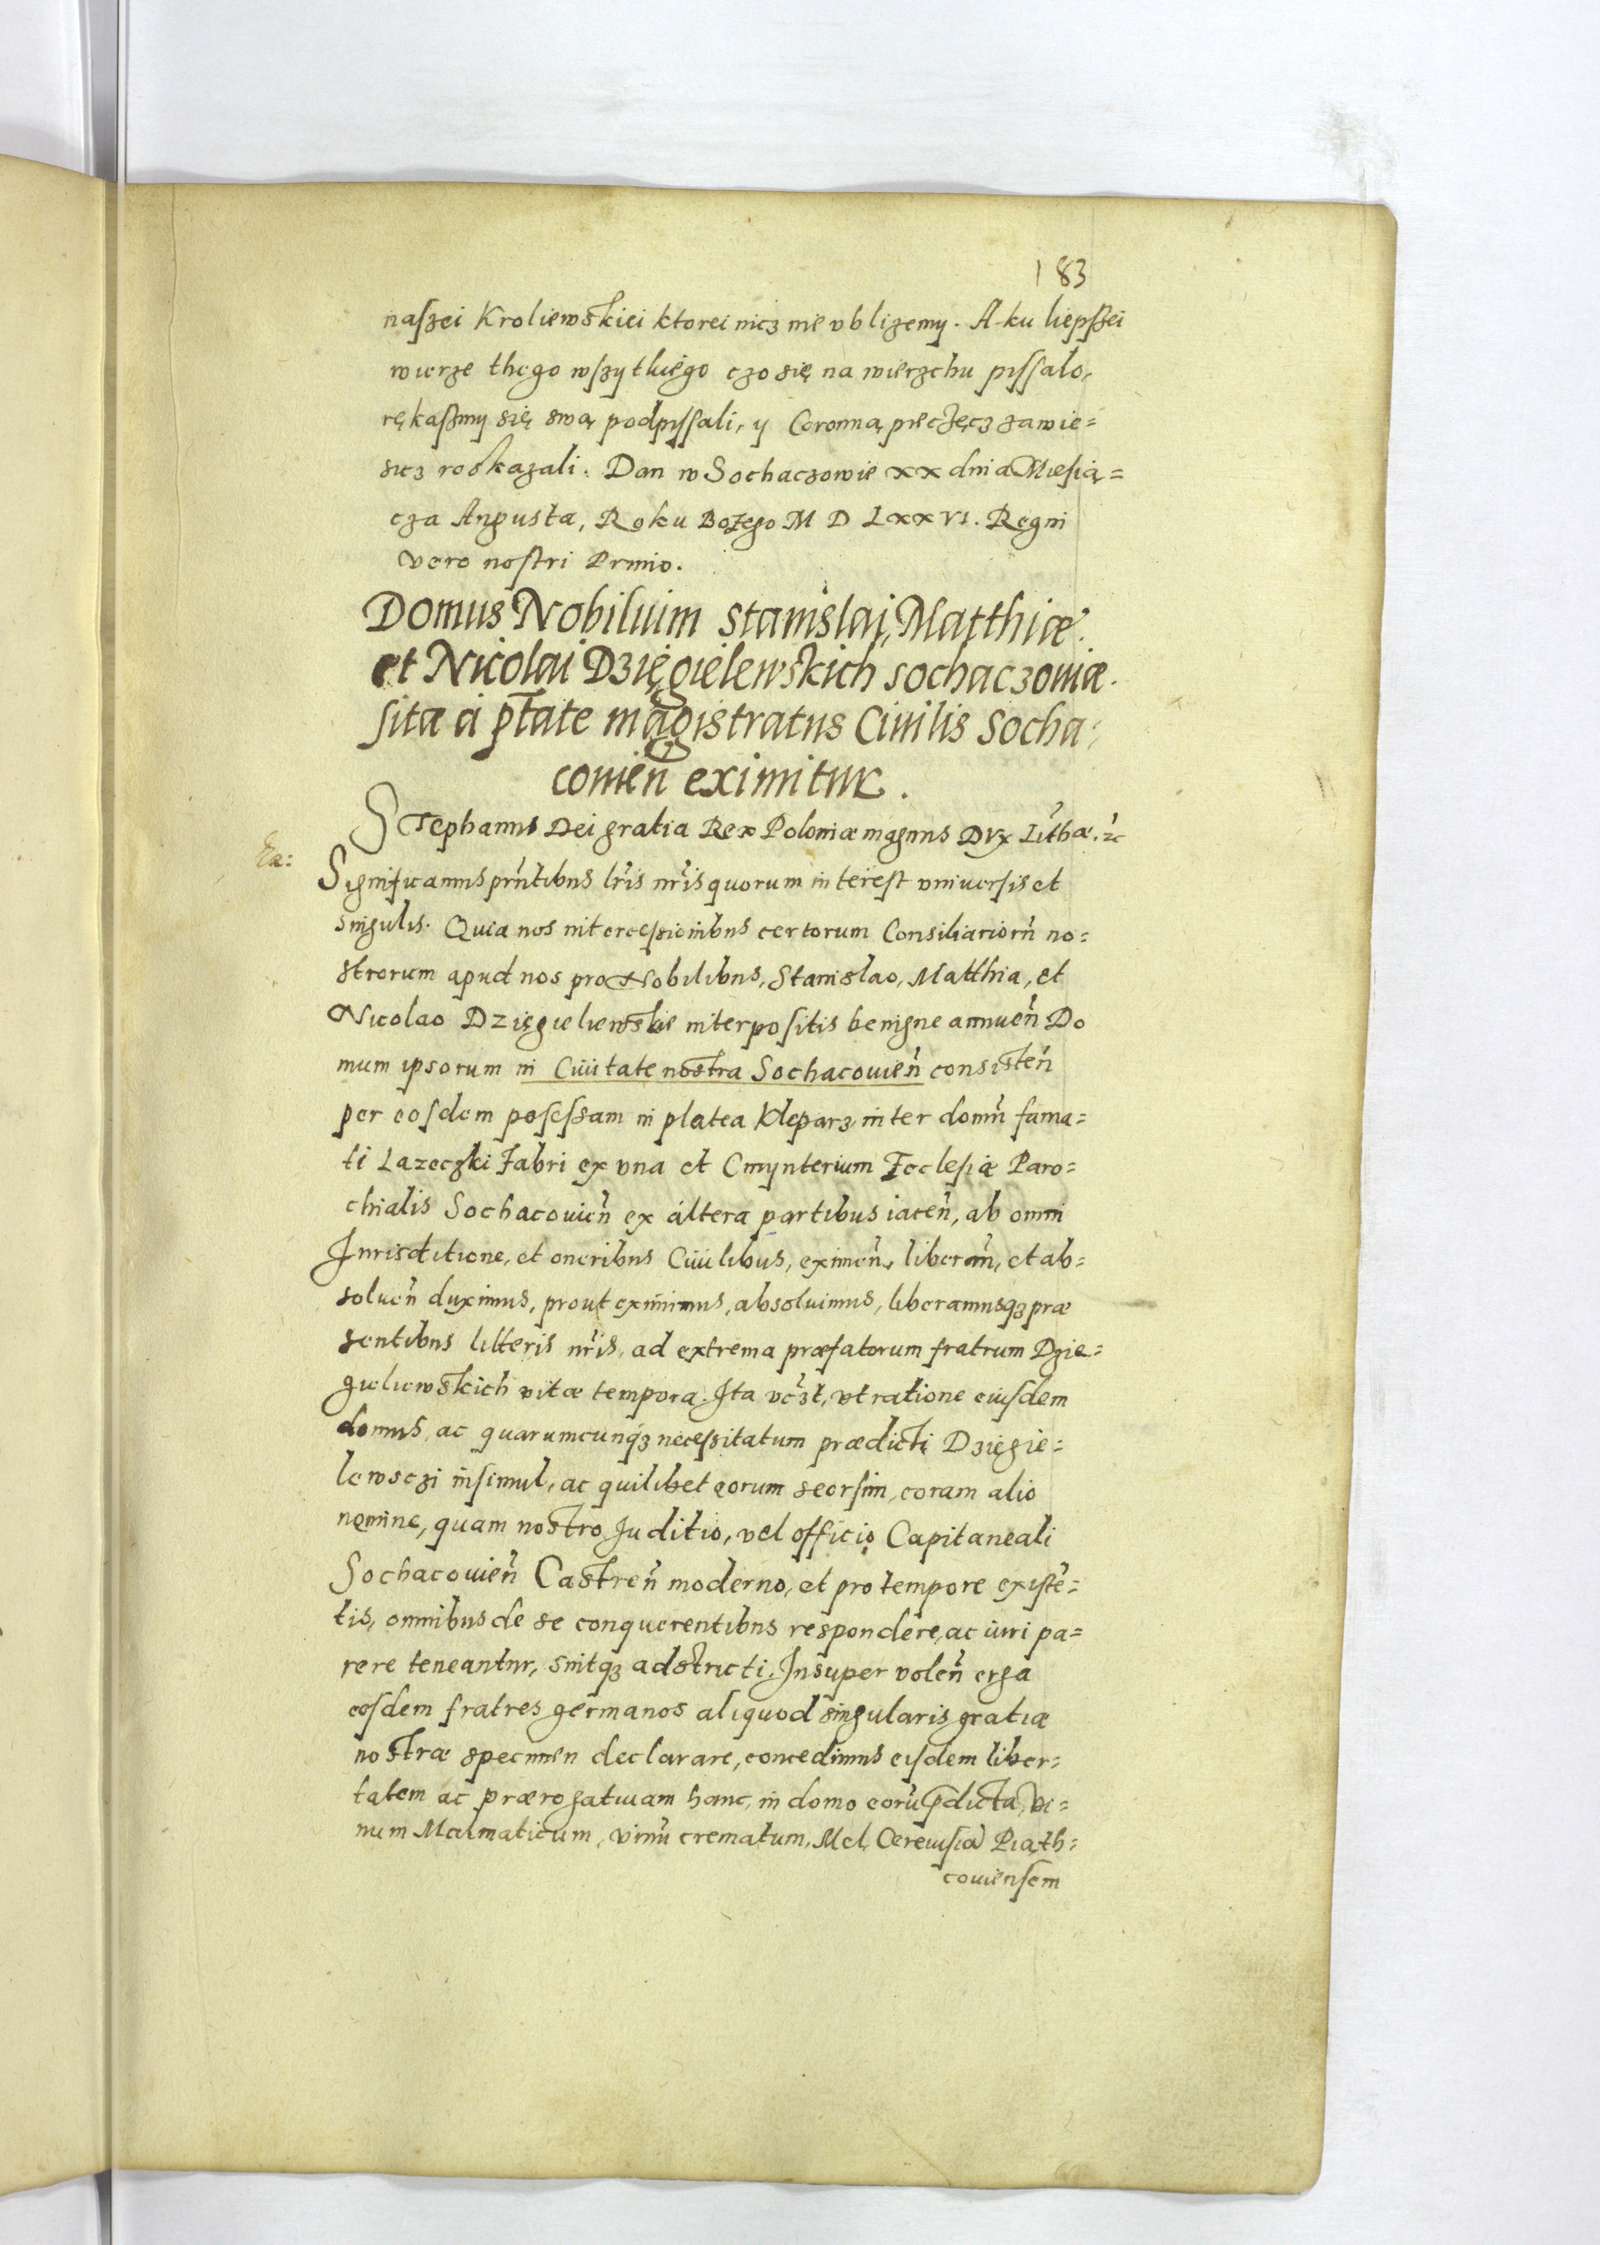 183
naszei Kroliewskiei ktorei nicz nie vblizemy. A ku liepszei
wierze thego wszytkiego czo się na wierzchu pissało,
rękaszmy się swą podpissali, y Coronną pieczęcz zawie=
sicz roskazali. Dan w Sochaczowie xx dnia Miesią=
cza Augusta, Roku Bożego M D LXXVI. Regni
vero nostri Primo.
Domus Nobilium Stanislai, Matthiæ
et Nicolai Dzięgielewskich sochaczoviæ
sita a p̄tate magistratus Civilis Socha=
covień eximitur.
Stephanus Dei gratia Rex Poloniæ magnus Dvx Lithæ. ꝛc
Ex:
Significamus pr̃ntibus lr̃is nr̃is quorum interest vniuersis et
singulis. Quia nos intercessionibus certorum Consiliariorũ no=
strorum apud nos pro Nobilibus, Stanislao, Matthia, et
Nicolao Dzięgieliewskie interpositis benigne annueñ Do
mum ipsorum in Ciuitate nostra Sochacouieñ consisteñ
per eosdem posessam in platea Kleparz inter domũ fama=
ti Lazeczki Fabri ex vna et Cmynterium Ecclesiæ Paro=
chialis Sochacouieñ ex altera partibus iaceñ, ab omni
Iurisditione, et oneribus Ciuilibus, eximeñ, liberañ, et ab=
solueñ duximus, prout eximimus, absoluimus, liberamusqz præ
sentibus litteris nr̃is, ad extrema præfatorum fratrum Dzie=
gieliewskich vitæ tempora. Ita vc̃zt, vt ratione eiusdem
domus, ac quarumcunqz necessitatum prædicti Dzięgie=
lewsczi insimul, ac quilibet eorum seorsim, coram alio
nemine, quam nostro Iuditio, vel officio Capitaneali
Sochacouieñ Castreñ moderno, et pro tempore existẽ=
tis, omnibus de se conquerentibus respondere, ac iuri pa=
rere teneantur, sintqz adstricti. Insuper voleñ erga
eosdem fratres germanos aliquod singularis gratiæ
nostræ specimen declarare, concedimus eisdem liber=
tatem ac prærogatiuam hanc, in domo eorũ p̄dicta, vi=
num Malmaticum, vinũ crematum, Mel, Cereuisiã Piąth=
couiensem